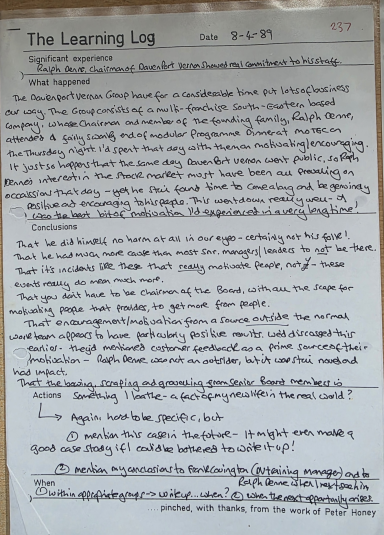 237
The Learning Log Date 8-4-89
Significant experience
Ralph Denne, chairman of Davenport Vernon showed real commitment to his staff.
What happened
The Davenport Vernon Group have for a considerable time put lots of business
our way. The Group consists of a multi-franchise South-Eastern based
company, whose Chairman and member of the founding family, Ralph Denne,
attended a fairly swanky end of modular Programme Dinner at MOTEC on
the Thursday night. I'd spent that day with them on motivating/encouraging.
It just so happens that the same day Davenport Vernon went public, so Ralph
Denne's interest in the stock market must have been all prevailing on
occasion that day - yet he still found time to come along and be genuinely
positive and encouraging to his people. This went down really well - &
was the best bit of motivation I'd experienced in a very long time!
Conclusions
That he did himself no harm at all in our eyes - certainly not his folks'.
That he had much more cause than most snr. managers/leaders to not be there.
That it's incidents like these that really motivate people, not £ - these
events really do mean much more.
That you don't have to be chairman of the Board, with all the scope for
motivating people that provides, to get more from people.
That encouragement/motivation from a source outside the normal
work team appears to have particularly positive results. We'd discussed this
earlier - they'd mentioned customer feedback as a prime source of their
motivation - Ralph Denne was not an outsider, but it was still novel and
had impact.
That the bowing, scraping and grovelling from Senior Board members is
Actions something I loathe - a fact of my new life in the real world?
Again, hard to be specific, but
① mention this case in the future - It might even make a
good case study if I could be bothered to write it up!
② mention my conclusions to (training manager) and to
Ralph Denne when I next see him
When
① within appropriate groups → write up... when? ② when the next opportunity arises
.... pinched, with thanks, from the work of Peter Honey